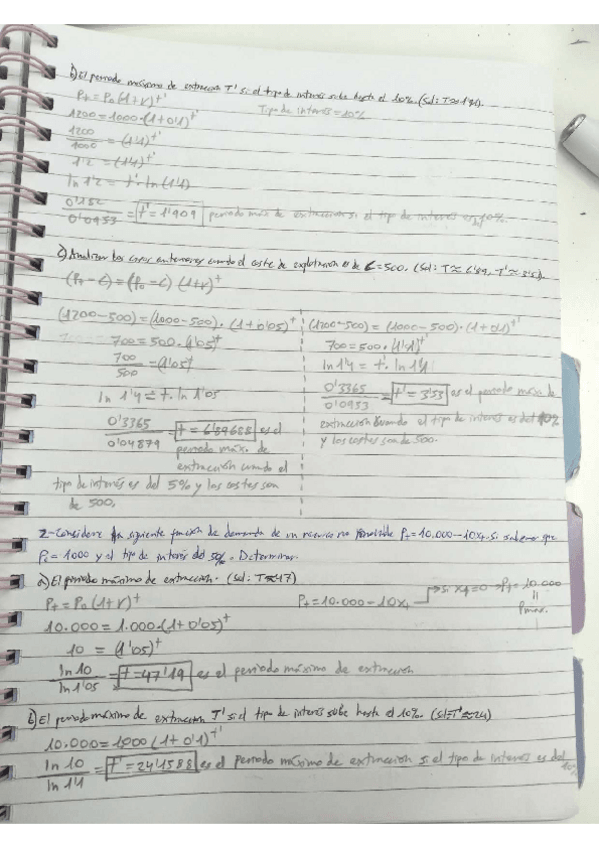 b) El periodo máximo de extracción T' si el tipo de interés sube hasta el 10%. (Sol: T≈1'91).
Pt = P0(1+r)^t' Tipo de interés = 10%
1200 = 1000·(1+0'1)^t'
1200/1000 = (1'1)^t'
1'2 = (1'1)^t'
ln 1'2 = t'·ln(1'1)
0'182/0'0953 = t' = 1'909 periodo máx de extracción si el tipo de interés es 10%.
c) Analizar los casos anteriores cuando el coste de explotación es de C=500. (Sol: T≈6'89, T'≈3'53).
(Pt - C) = (P0 - C) (1+r)^t
(1200-500) = (1000-500)·(1+0'05)^t
700 = 500·(1'05)^t
700/500 = (1'05)^t
ln 1'4 = t·ln 1'05
0'3365/0'04879 = t = 6'89688 es el
periodo máx. de
extracción cuando el
tipo de interés es del 5% y los costes son
de 500.
(1200-500) = (1000-500)·(1+0'1)^t'
700 = 500·(1'1)^t'
ln 1'4 = t'·ln 1'1
0'3365/0'0953 = t' = 3'53 es el periodo máximo de
extracción cuando el tipo de interés es del 10%
y los costes son de 500.
2-Considere la siguiente función de demanda de un recurso no renovable Pt = 10.000-10xt. Si sabemos que
P0 = 1000 y el tipo de interés del 5%. Determinar
a) El periodo máximo de extracción. (Sol: T≈47)
Pt = P0(1+r)^t Pt = 10.000-10xt → si xt=0 → Pt = 10.000
=
Pmax.
10.000 = 1.000·(1+0'05)^t
10 = (1'05)^t
ln 10/ln 1'05 = t = 47'19 es el periodo máximo de extracción
b) El periodo máximo de extracción T' si el tipo de interés sube hasta el 10%. (sol=T'≈24)
10.000 = 1000 (1+0'1)^t'
ln 10/ln 1'1 = t' = 24'1588 es el periodo máximo de extracción si el tipo de interés es del
10%